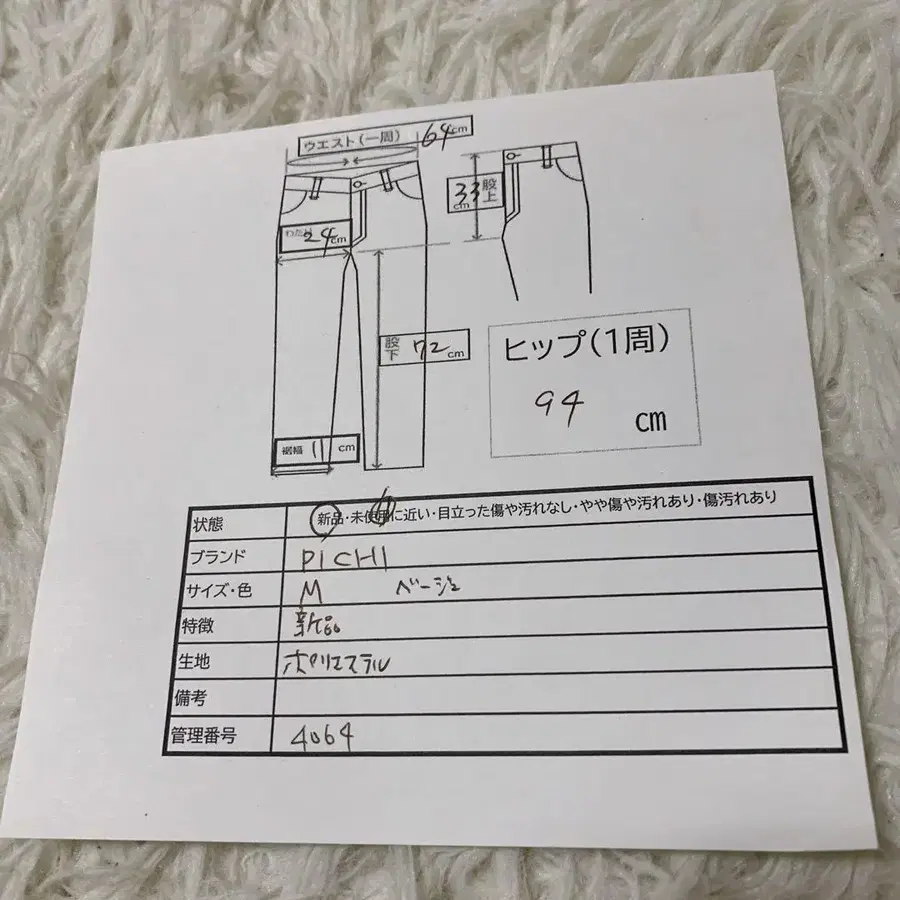 ウエスト(一周) 64cm
33 股上 cm
わたり 24cm
股下 72cm
ヒップ(1周)
94 cm
裾幅 11 cm
状態 新品・未使用に近い・目立った傷や汚れなし・やや傷や汚れあり・傷汚れあり
ブランド PICHI
サイズ・色 M ベージュ
特徴 新品
生地 ポリエステル
備考
管理番号 4064